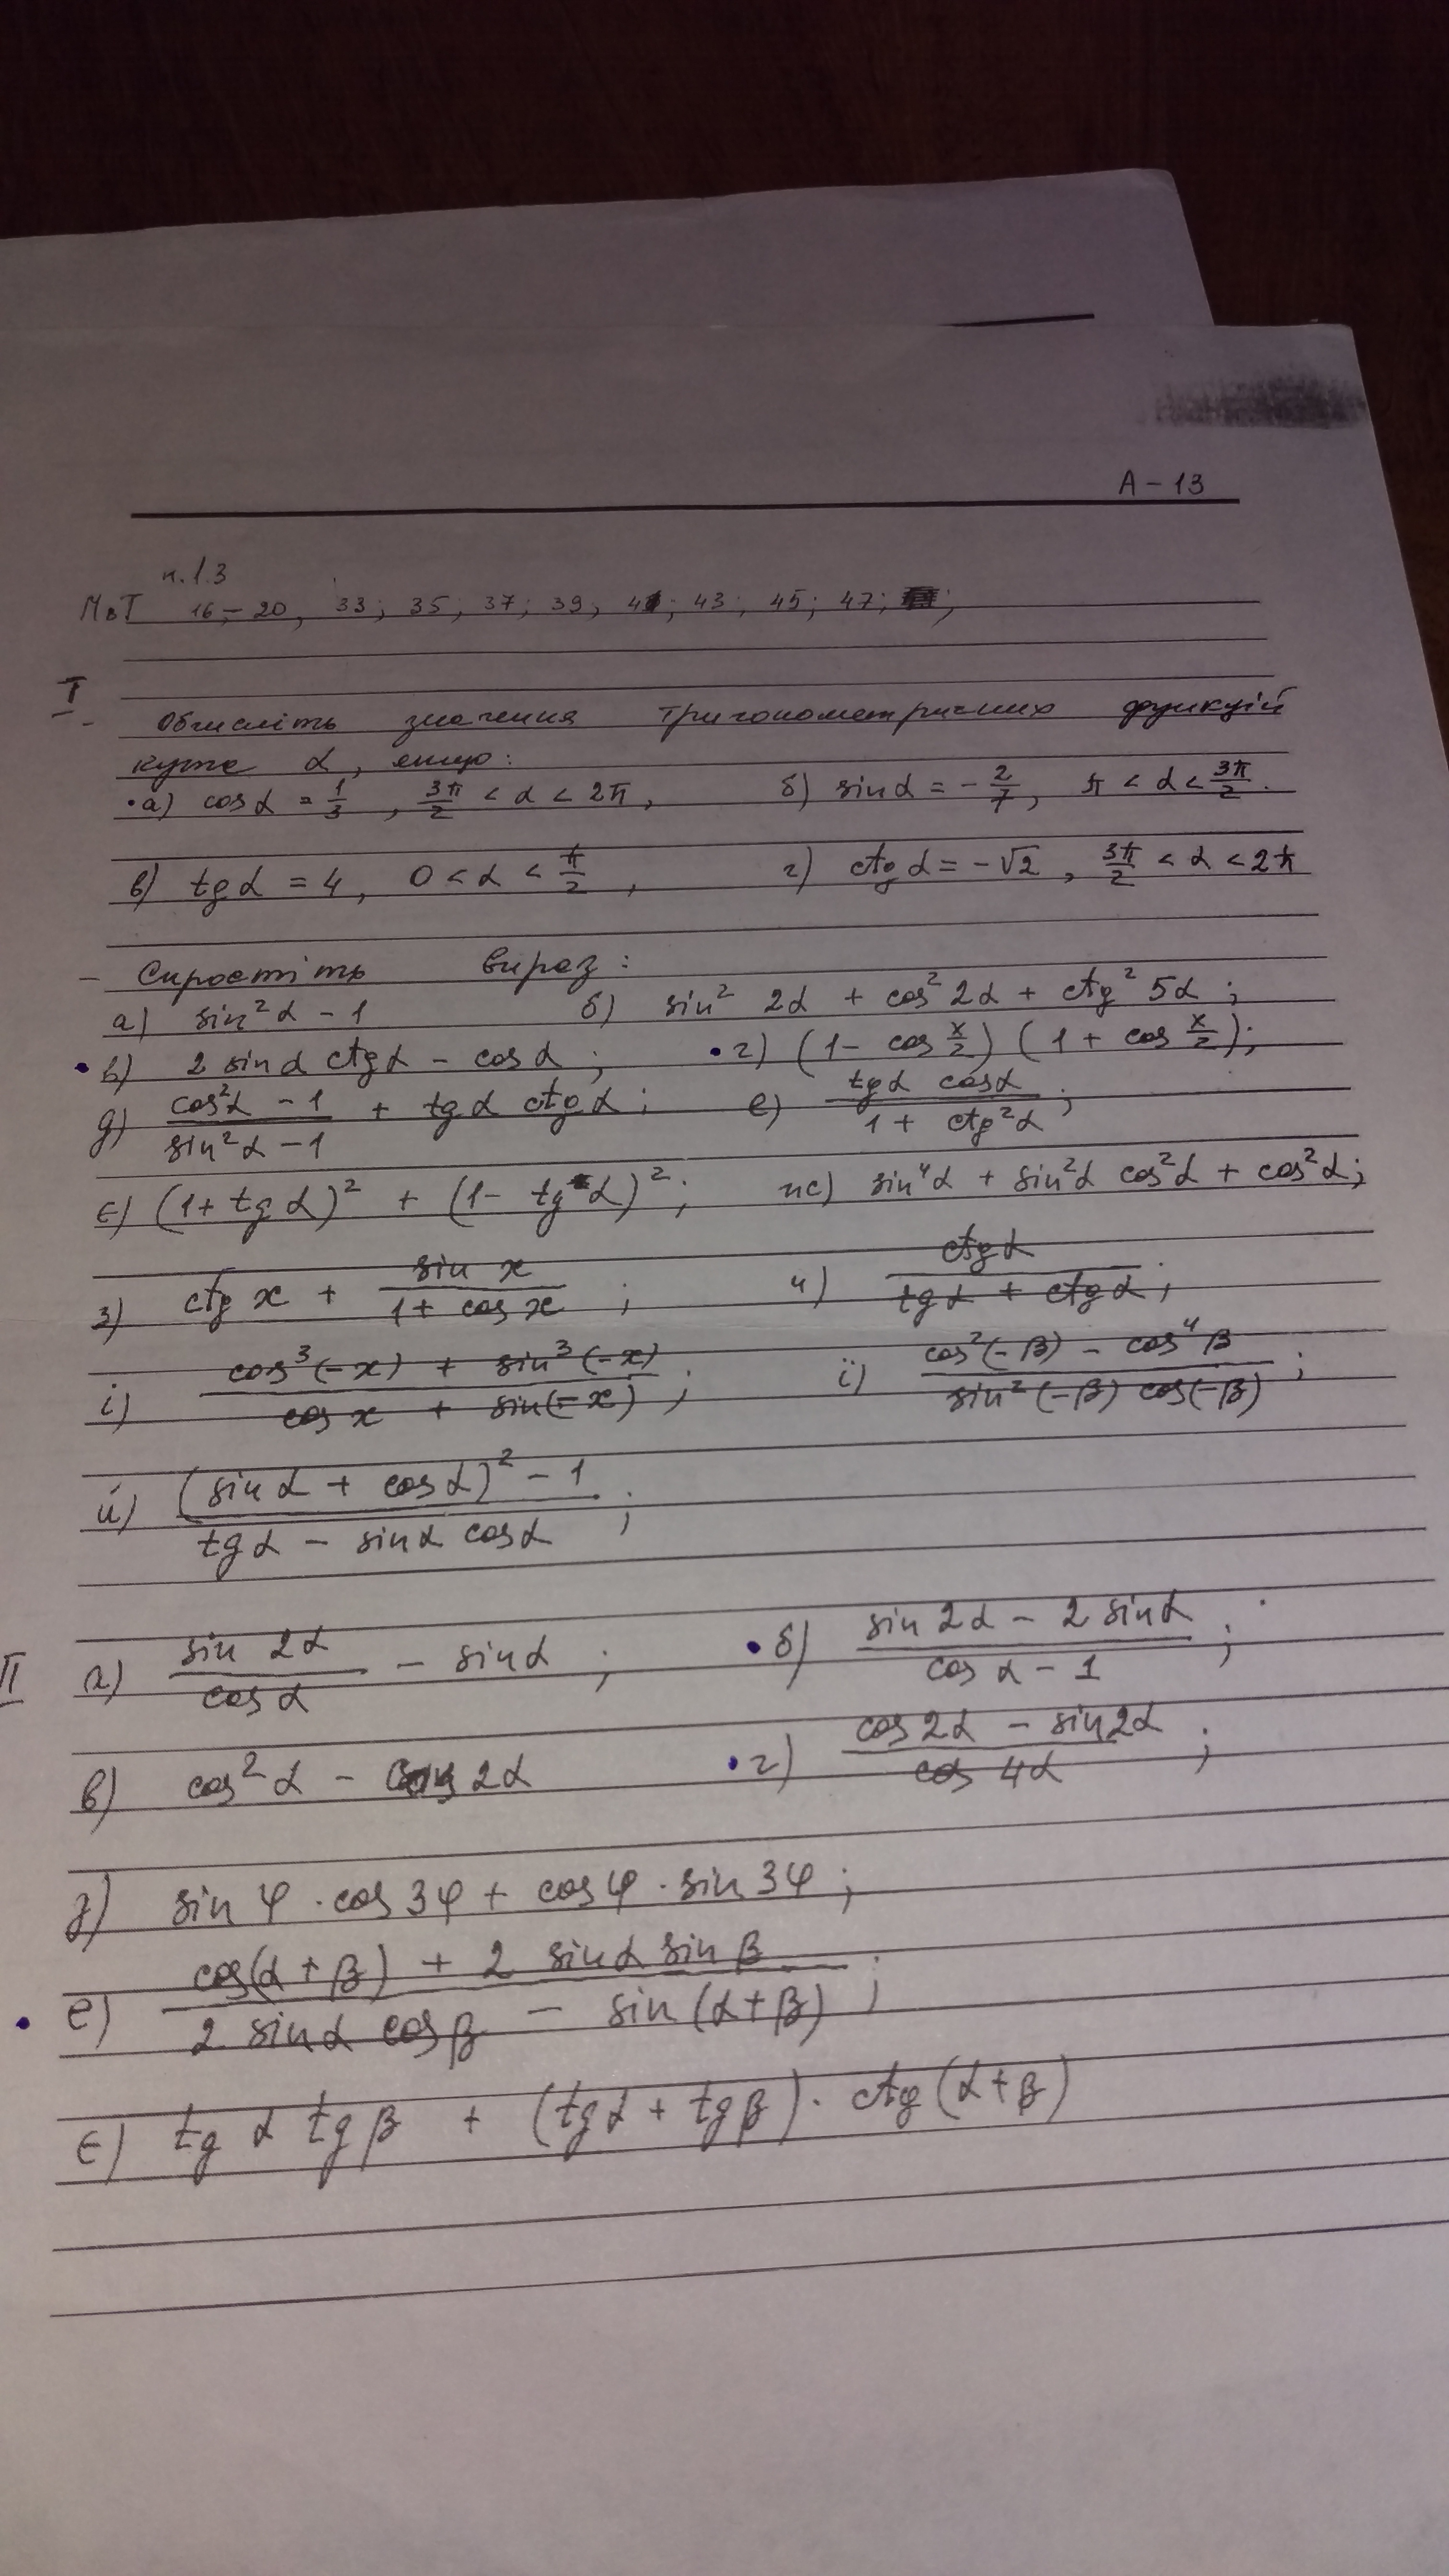 A - 13
п. 1.3
МвТ 16 - 20, 33; 35; 37; 39; 41; 43; 45; 47;
I
- Обчисліть значення тригонометричних функцій
кута α, якщо:
• а) cos α = 1/3, 3π/2 < α < 2π, б) sin α = - 2/7, π < α < 3π/2.
в) tg α = 4, 0 < α < π/2, г) ctg α = - √2, 3π/2 < α < 2π
- Спростіть вираз:
а) sin² α - 1 б) sin² 2α + cos² 2α + ctg² 5α;
• в) 2 sin α ctg α - cos α; • г) (1 - cos x/2) (1 + cos x/2);
д) (cos² α - 1)/(sin² α - 1) + tg α ctg α; е) (tg α cos α)/(1 + ctg² α);
є) (1 + tg α)² + (1 - tg α)²; ж) sin⁴ α + sin² α cos² α + cos² α;
з) ctg x + (sin x)/(1 + cos x); и) (ctg α)/(tg α + ctg α);
і) (cos³ (-x) + sin³ (-x))/(cos x + sin (-x)); ї) (cos² (-β) - cos⁴ β)/(sin² (-β) cos (-β));
й) ((sin α + cos α)² - 1)/(tg α - sin α cos α);
II а) (sin 2α)/(cos α) - sin α; • б) (sin 2α - 2 sin α)/(cos α - 1);
в) cos² α - cos 2α • г) (cos 2α - sin 2α)/(cos 4α);
д) sin φ · cos 3φ + cos φ · sin 3φ;
• е) (cos (α + β) + 2 sin α sin β)/(2 sin α cos β - sin (α + β));
є) tg α tg β + (tg α + tg β) · ctg (α + β)